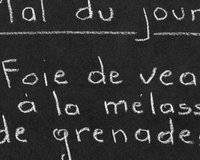 al du jour
Foie de vea
à la mélass
de grenade